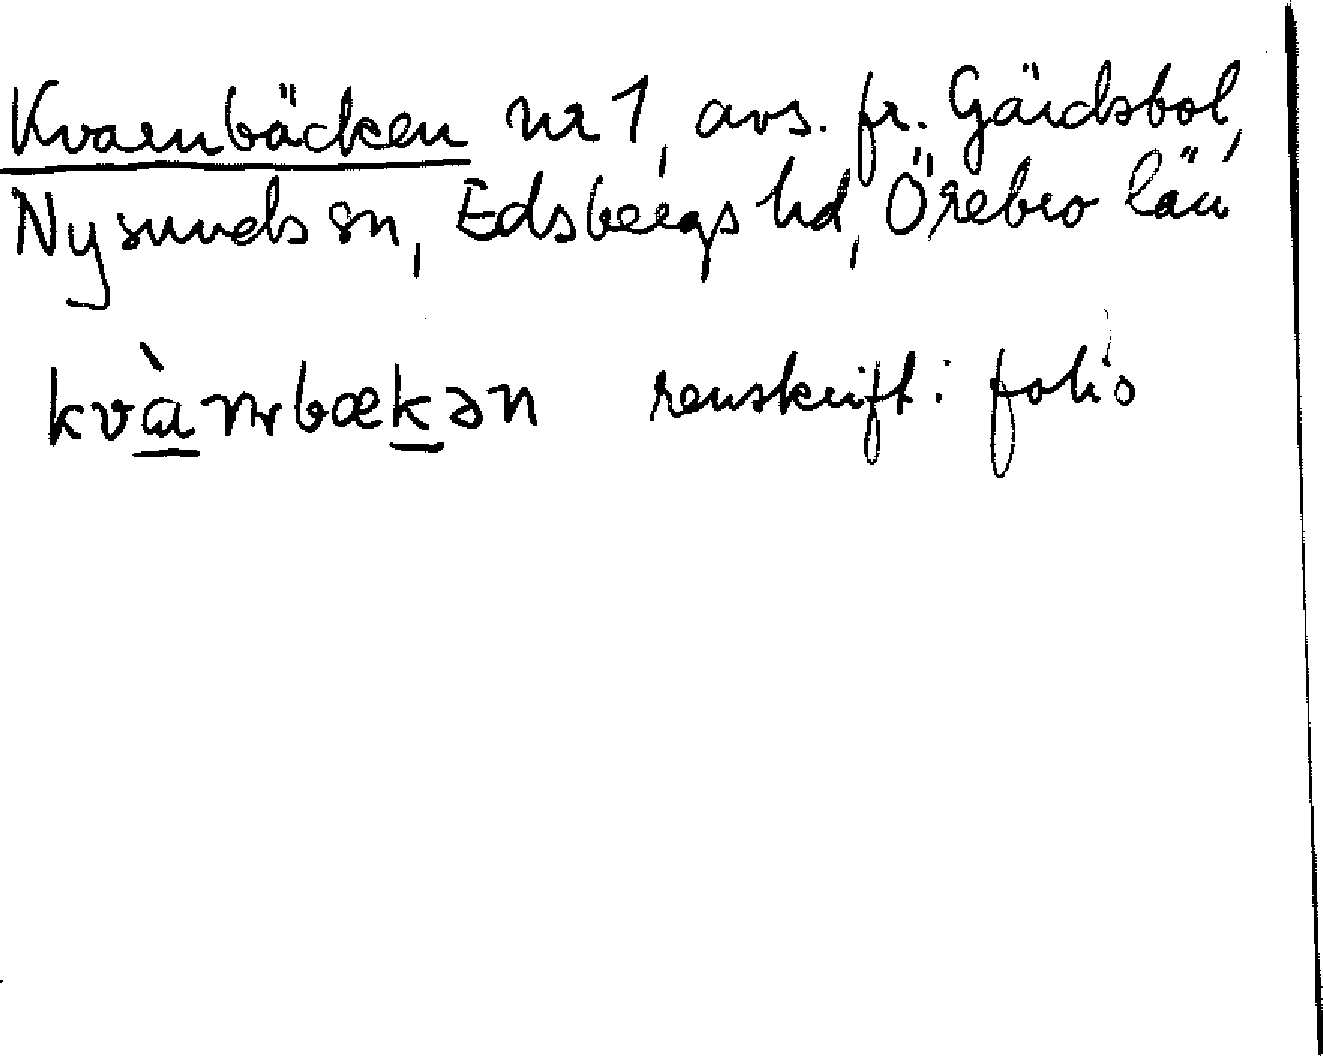 Kvarnbäcken nr 1, avs. fr. Gärdsbol,
Nysunds sn, Edsbergs hd, Örebro län
kvà̱rnbæḵən renskrift: folio